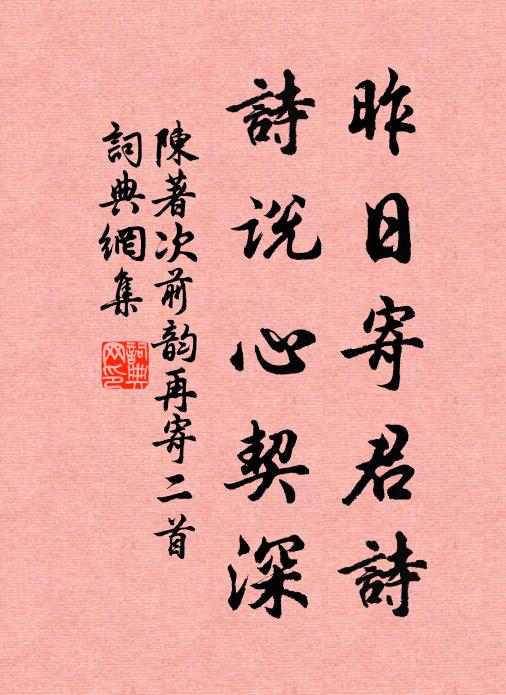 昨日寄君詩
詩説心契深
陳著次前韵再寄二首
詞典網集
詞典網印